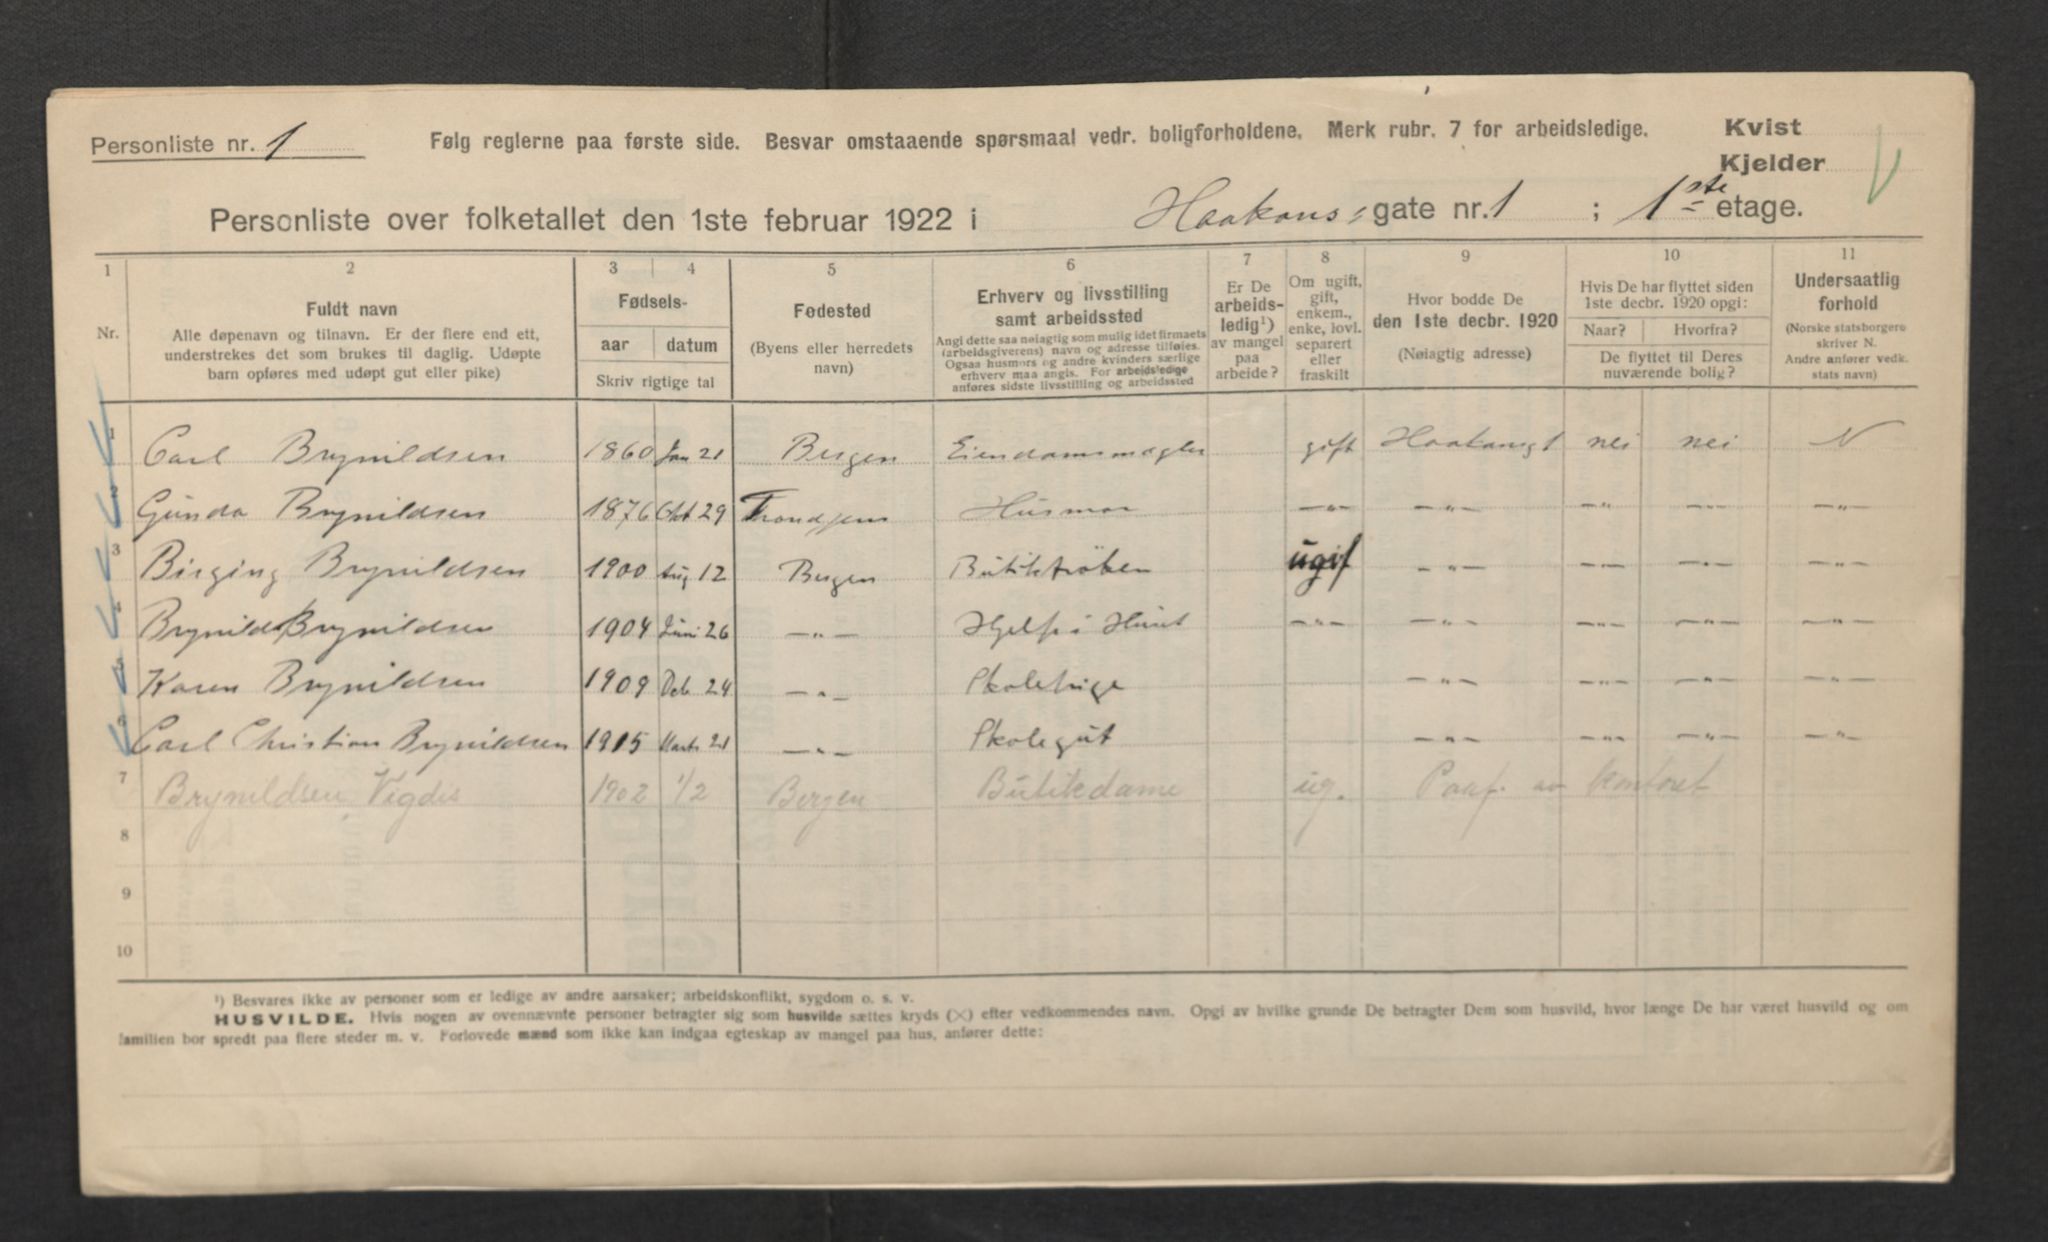 Personliste nr. 1
Følg reglerne paa første side. Besvar omstaaende spørsmaal vedr. boligforholdene. Merk rubr. 7 for arbeidsledige.
Kvist
Kjelder
Personliste over folketallet den 1ste februar 1922 i Haakons gate nr. 1 ; 1ste etage.
1 2 3 4 5 6 7 8 9 10 11
Nr.
Fuldt navn
Alle døpenavn og tilnavn. Er der flere end ett,
understrekes det som brukes til daglig. Udøpte
barn opføres med udøpt gut eller pike)
Fødsels-
aar datum
Skriv rigtige tal
Fødested
(Byens eller herredets
navn)
Erhverv og livsstilling
samt arbeidssted
Angi dette saa nøiagtig som mulig idet firmaets
(arbeidsgiverens) navn og adresse tilføies.
Ogsaa husmors og andre kvinders særlige
erhverv maa angis. For arbeidsledige
anføres sidste livsstilling og arbeidssted
Er De
arbeids-
ledig¹)
av mangel
paa
arbeide?
Om ugift,
gift,
enkem.,
enke, lovl.
separert
eller
fraskilt
Hvor bodde De
den 1ste decbr. 1920
(Nøiagtig adresse)
Hvis De har flyttet siden
1ste decbr. 1920 opgi:
Naar? Hvorfra?
De flyttet til Deres
nuværende bolig?
Undersaatlig
forhold
(Norske statsborgere
skriver N.
Andre anfører vedk.
stats navn)
1 Carl Brynildsen 1860 Jan 21 Bergen Eiendomsmægler gift Haakonsgt 1 nei nei N
2 Gunda Brynildsen 1876 Okt 29 Trondjem Husmor -"- -"- -"- -"- -"-
3 Brynildsen 1900 Aug 12 Bergen ugif -"- -"- -"- -"-
4 Brynildsen 1904 Juni 26 -"- Hjelp i Huset -"- -"- -"- -"- -"-
5 Karen Brynildsen 1909 24 -"- Skolepige -"- -"- -"- -"-
6 Carl Christian Brynildsen 1915 Marts 21 -"- Skolegut -"- -"- -"- -"-
7 Brynildsen, Vigdis 1902 1/2 Bergen Butikdame ug. Paaf. av kontoret
8
9
10
¹) Besvares ikke av personer som er ledige av andre aarsaker; arbeidskonflikt, sygdom o. s. v.
HUSVILDE. Hvis nogen av ovennævnte personer betragter sig som husvilde sættes kryds (×) efter vedkommendes navn. Opgi av hvilke grunde De betragter Dem som husvild, hvor længe De har været husvild og om
familien bor spredt paa flere steder m. v. Forlovede mænd som ikke kan indgaa egteskap av mangel paa hus, anfører dette: